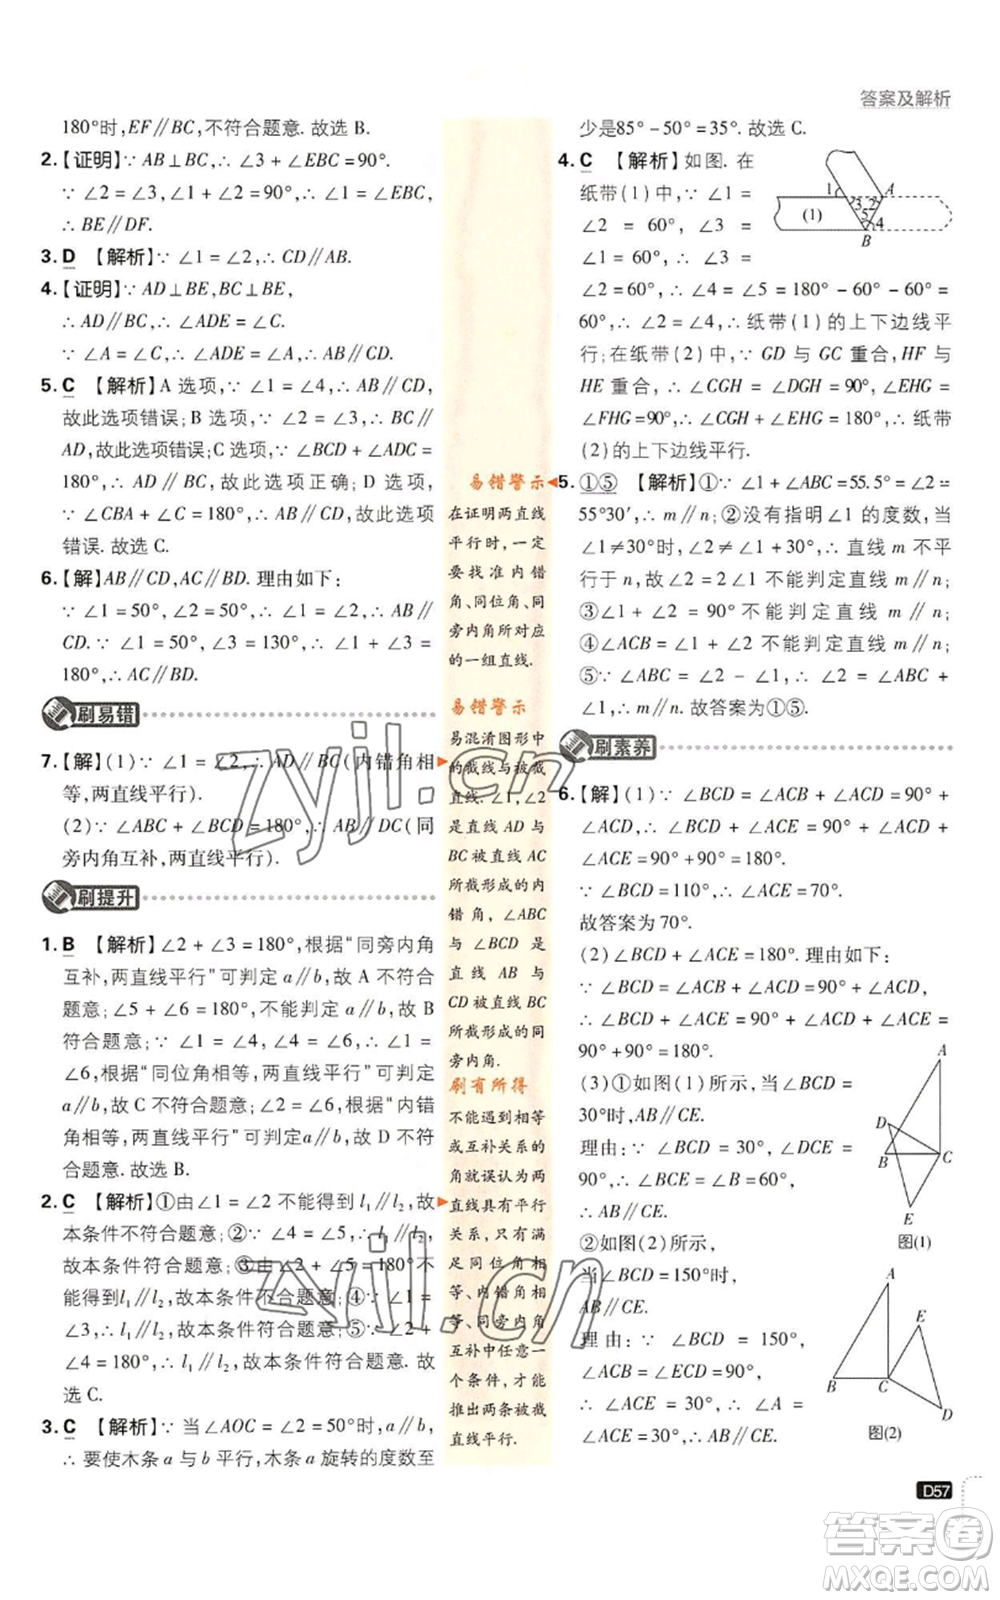 答案及解析
180°时,EF∥BC,不符合题意. 故选 B.
2.【证明】∵ AB⊥BC,∴ ∠3 + ∠EBC = 90°.
∵ ∠2 = ∠3,∠1 + ∠2 = 90°,∴ ∠1 = ∠EBC,
∴ BE∥DF.
3. D 【解析】∵ ∠1 = ∠2,∴ CD∥AB.
4.【证明】∵ AD⊥BE,BC⊥BE,
∴ AD∥BC,∴ ∠ADE = ∠C.
∵ ∠A = ∠C,∴ ∠ADE = ∠A,∴ AB∥CD.
5. C 【解析】A 选项,∵ ∠1 = ∠4,∴ AB∥CD,
故此选项错误;B 选项,∵ ∠2 = ∠3,∴ BC∥
AD,故此选项错误;C 选项,∵ ∠BCD + ∠ADC =
180°,∴ AD∥BC,故此选项正确;D 选项,
∵ ∠CBA + ∠C = 180°,∴ AB∥CD,故此选项
错误. 故选 C.
6.【解】AB∥CD,AC∥BD. 理由如下:
∵ ∠1 = 50°,∠2 = 50°,∴ ∠1 = ∠2,∴ AB∥
CD. ∵ ∠1 = 50°,∠3 = 130°,∴ ∠1 + ∠3 =
180°,∴ AC∥BD.
刷易错
7.【解】(1)∵ ∠1 = ∠2,∴ AD∥BC(内错角相
等,两直线平行).
(2)∵ ∠ABC + ∠BCD = 180°,∴ AB∥DC(同
旁内角互补,两直线平行).
刷提升
1. B 【解析】∠2 + ∠3 = 180°,根据“同旁内角
互补,两直线平行”可判定 a∥b,故 A 不符合
题意;∠5 + ∠6 = 180°,不能判定 a∥b,故 B
符合题意;∵ ∠4 + ∠5 = 180°,∠4 + ∠6 = 180°,
∴ ∠5 = ∠6,根据“同位角相等,两直线平行”可判定
a∥b,故 C 不符合题意;∠1 = ∠2,根据“内错
角相等,两直线平行”可判定 a∥b,故 D 不符
合题意. 故选 B.
2. C 【解析】①由∠1 = ∠2 不能得到 l₁∥l₂,故
本条件不符合题意;②∵ ∠4 = ∠5,∴ l₁∥l₂,
故本条件符合题意;③由∠2 + ∠5 = 180°不
能得到 l₁∥l₂,故本条件不合题意;④∵ ∠1 =
∠3,∴ l₁∥l₂,故本条件符合题意;⑤∵ ∠2 +
∠4 = 180°,∴ l₁∥l₂,故本条件符合题意. 故
选 C.
3. C 【解析】∵ 当∠AOC = ∠2 = 50°时,a∥b,
∴ 要使木条 a 与 b 平行,木条 a 旋转的度数至
易错警示
在证明两直线
平行时,一定
要找准内错
角、同位角、同
旁内角所对应
的一组直线.
易错警示
易混淆图形中
的截线与被截
直线. ∠1,∠2
是直线 AD 与
BC 被直线 AC
所截形成的内
错角,∠ABC
与 ∠BCD 是
直线 AB 与
CD 被直线 BC
所截形成的同
旁内角.
刷有所得
不能遇到相等
或互补关系的
角就误认为两
直线具有平行
关系,只有满
足同位角相
等、内错角相
等、同旁内角
互补中任意一
个条件,才能
推出两条被截
直线平行.
少是85° - 50° = 35°. 故选 C.
4. C 【解析】如图. 在
纸带(1)中,∵ ∠1 =
∠2 = 60°, ∴ ∠3 =
60°, ∴ ∠3 =
∠2 = 60°,∴ ∠4 = ∠5 = 180° - 60° - 60° =
60°,∴ ∠2 = ∠4,∴ 纸带(1)的上下边线平
行;在纸带(2)中,∵ GD 与 GC 重合,HF 与
HE 重合,∴ ∠CGH = ∠DGH = 90°,∠EHG =
∠FHG = 90°,∴ ∠CGH + ∠EHG = 180°,∴ 纸带
(2)的上下边线平行.
1 3 2 A
(1) 5 4
B
5. ①⑤ 【解析】①∵ ∠1 + ∠ABC = 55.5° = ∠2 =
55°30′,∴ m∥n;②没有指明∠1 的度数,当
∠1≠30°时,∠2≠∠1 + 30°,∴ 直线 m 不平
行于 n,故∠2 = 2∠1 不能判定直线 m∥n;
③∠1 + ∠2 = 90°不能判定直线 m∥n;
④∠ACB = ∠1 + ∠2 不能判定直线 m∥n;
⑤∵ ∠ABC = ∠2 - ∠1,∴ ∠2 = ∠ABC +
∠1,∴ m∥n. 故答案为①⑤.
刷素养
6.【解】(1)∵ ∠BCD = ∠ACB + ∠ACD = 90° +
∠ACD,∴ ∠BCD + ∠ACE = 90° + ∠ACD +
∠ACE = 90° + 90° = 180°.
∵ ∠BCD = 110°,∴ ∠ACE = 70°.
故答案为 70°.
(2)∠BCD + ∠ACE = 180°. 理由如下:
∵ ∠BCD = ∠ACB + ∠ACD = 90° + ∠ACD,
∴ ∠BCD + ∠ACE = 90° + ∠ACD + ∠ACE =
90° + 90° = 180°.
(3)①如图(1)所示,当∠BCD =
30°时,AB∥CE.
理由:∵ ∠BCD = 30°,∠DCE =
90°, ∴ ∠BCE = 60°, ∴ ∠BCE =
∠B = 60°,
∴ AB∥CE.
A D B C E
图(1)
②如图(2)所示,
当∠BCD = 150°时,
AB∥CE.
理由:∵ ∠BCD = 150°,
∠ACB = ∠ECD = 90°,
∴ ∠ACE = 30°,
∴ ∠A = ∠ACE = 30°,∴ AB∥CE.
A E B C D
图(2)
D57
zyjl.cn
zyjl.cn
答案圈
MXQE.COM